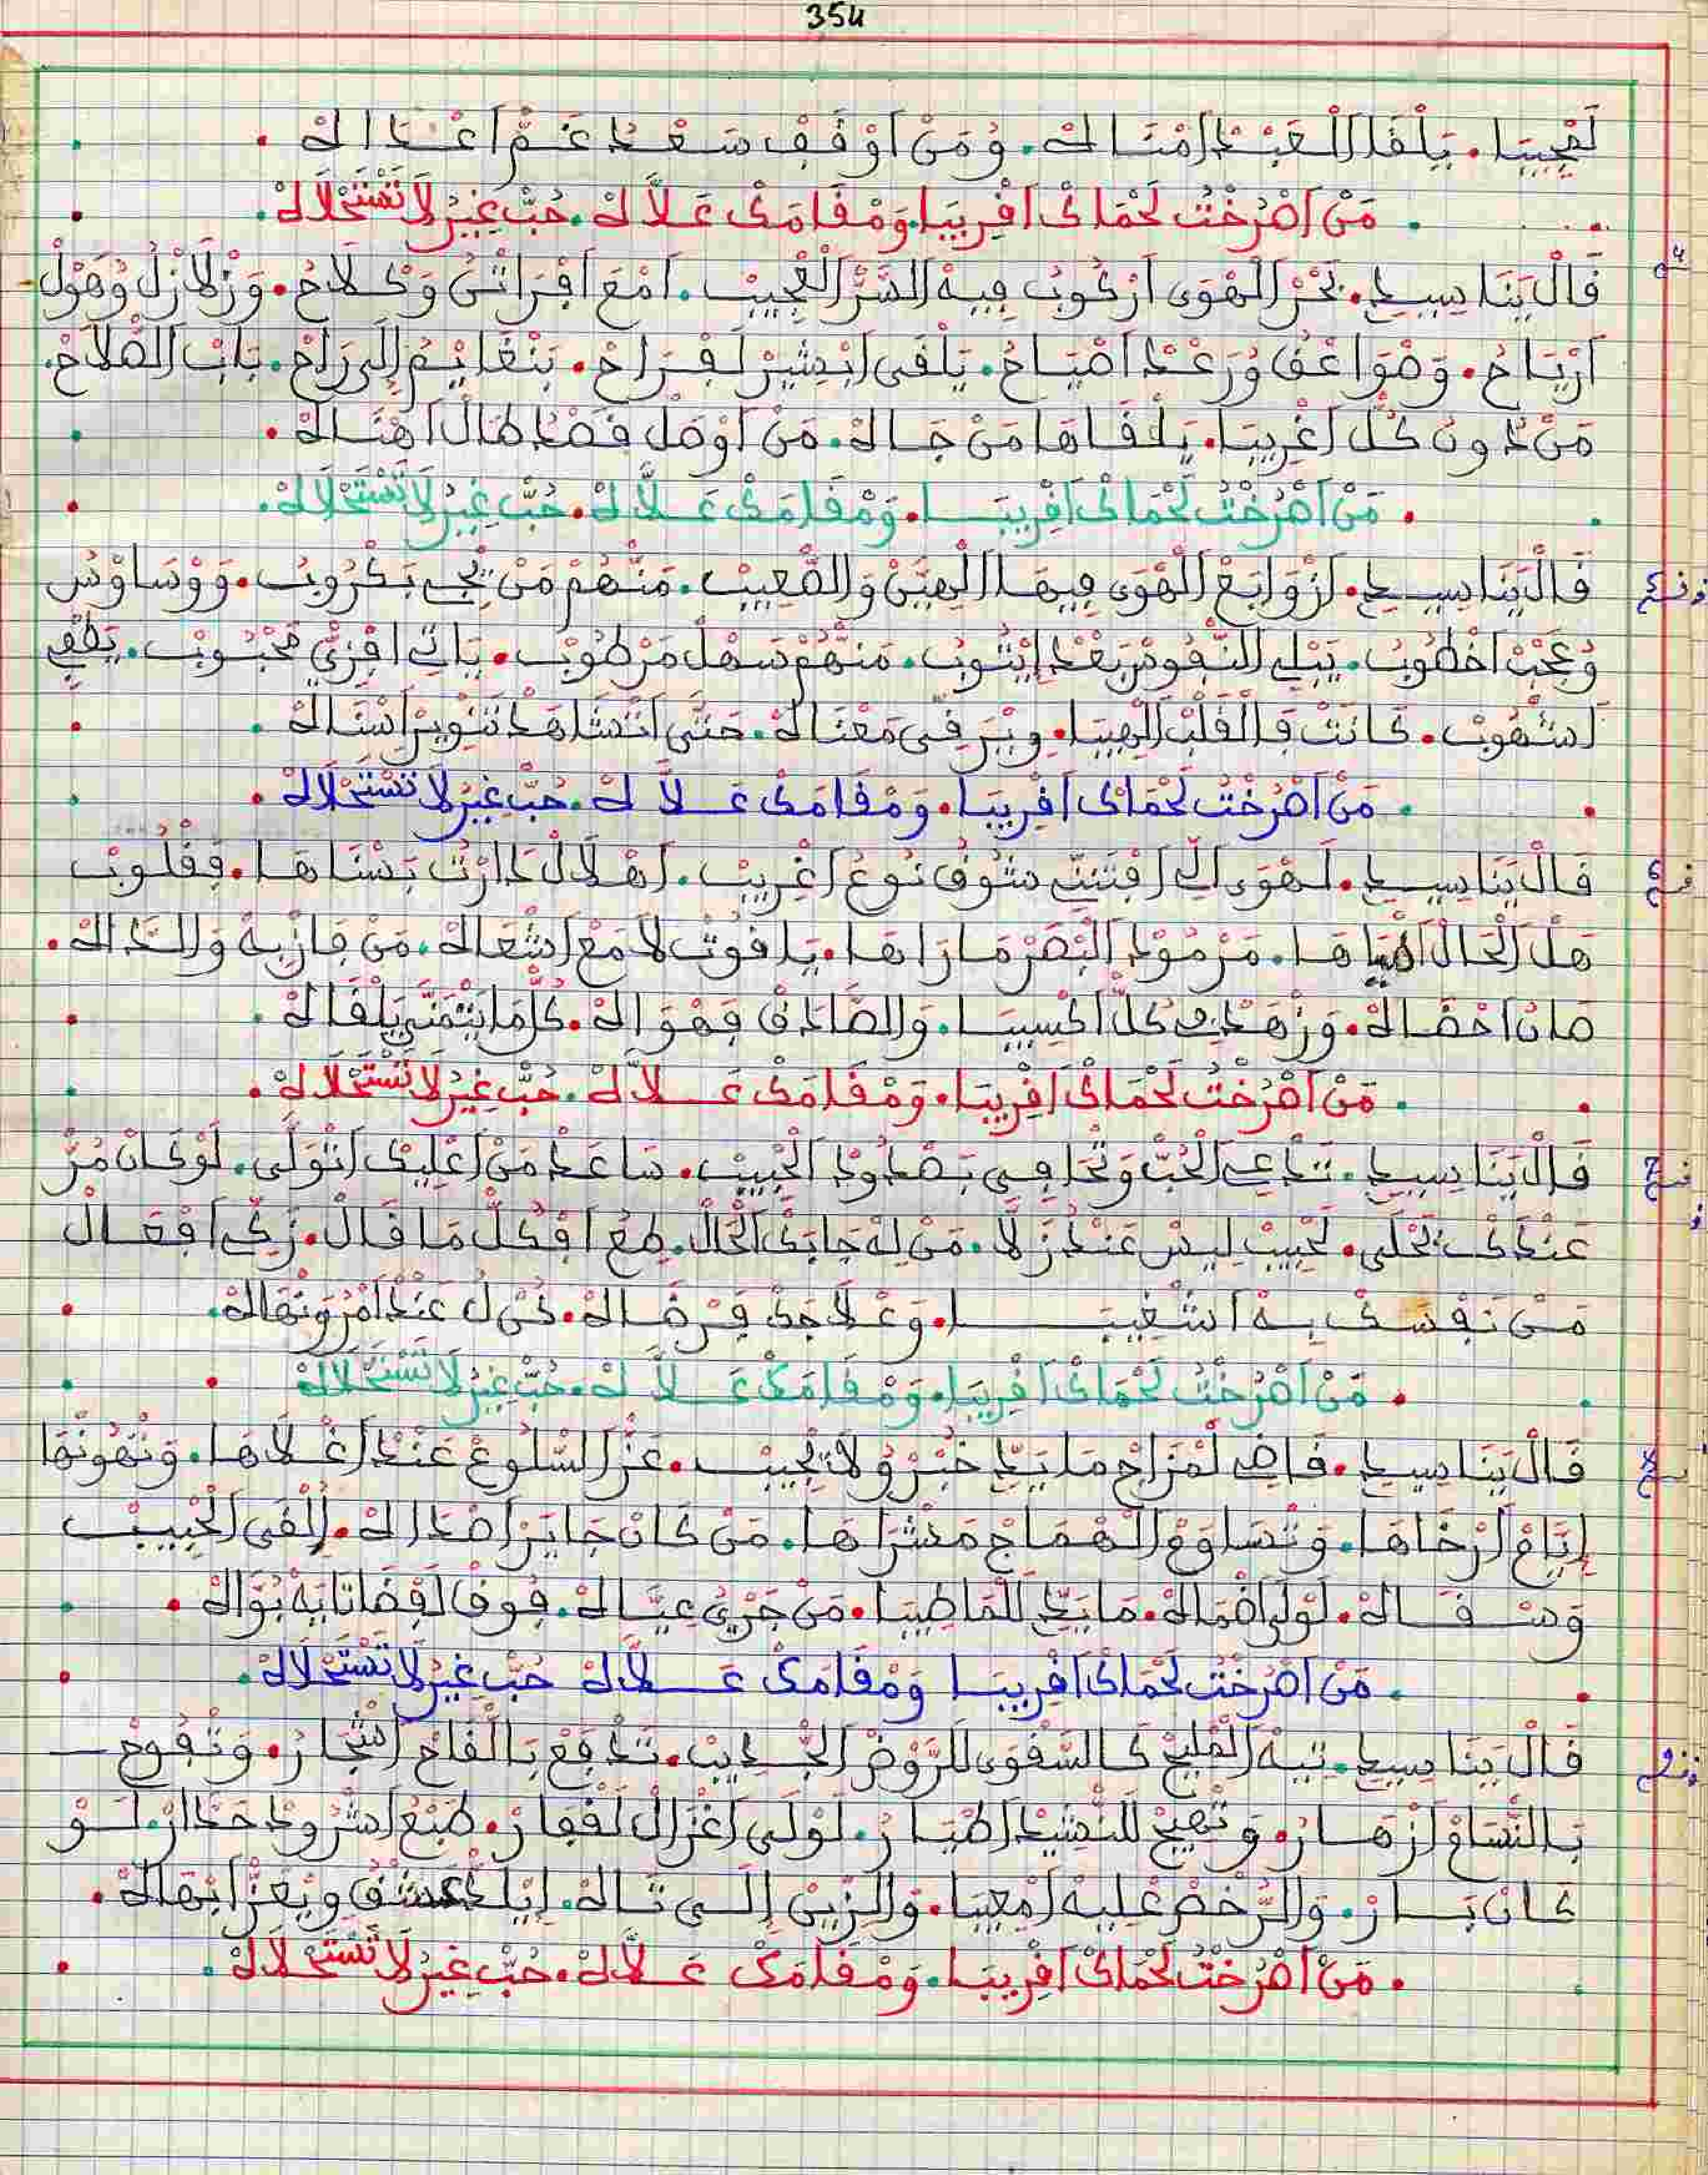 354
لَعْجِيبَا. يَلْقَا اَلْعَبْدْ اَمْنَاكْ. وُمَنْ اَوْقَفْ سَعْدُ غَمّْ اَعْدَاكْ.
مَنْ اَصْرَخْتُ لَحْمَاكْ اَقْرِيبَا. وَمْقَامَكْ عَلاَّكْ. حُبّْ غِيرُ لاَ تَسْتَحْلاَكْ.
قَالْ يَنَا سِيدِي. بَحْرْ اَلْهْوَى اَرْكُوبُ فِيهْ اَلسَّرّْ اَلْعْجِيبْ. اَمْعَ وَكْلاَحُ. وَزْلاَزْلُ وُهَوْلْ
اَرْيَاحُ. وَصْوَاعْقُ وُرَعْدْ اَصْيَاحُ. يَلْقَى اَبْشِيرْ لَفْرَاحْ. بَنْغَايَمُ إِلَى رَاحْ. بَابْ اَلصّْلاَحْ.
مَنْ دُونْ كُلّْ اَغْرِيبَا. يَلْقَاهَا مَنْ جَاكْ. مَنْ اَوْصَلْ قَصْدُ طَالْ اَهْنَاكْ.
مَنْ اَصْرَخْتُ لَحْمَاكْ اَقْرِيبَا. وَمْقَامَكْ عَلاَّكْ. حُبّْ غِيرُ لاَ تَسْتَحْلاَكْ.
قَالْ يَنَا سِيدِي. اَزْوَابَعْ اَلْهْوَى فِيهَا اَلْهِيَّنْ وَالصّْعِيبْ. مَنْهُمْ مَنْ يْجِي بَكْرُوبُ. وَوْسَاوْسُ
وُعَجْبْ اَخْطُوبُ. يَبْلِي اَلنّْفُوسْ بَعْدْ اِيْتُوبُ. مَنْهُمْ سَهْلْ مَرْطُوبْ. يَاتِي مَحْبُوبْ.
كَانَتْ فَالْقَلْبْ اَلْهِيبَا. مَعْنَاكْ. حَتَّى اَتْشَاهَدْ تَنْوِيرْ اَسْنَاكْ.
مَنْ اَصْرَخْتُ لَحْمَاكْ اَقْرِيبَا. وَمْقَامَكْ عَلاَّكْ. حُبّْ غِيرُ لاَ تَسْتَحْلاَكْ.
قَالْ يَنَا سِيدِي. لَهْوَى اِلِي اَفْتَنّي شَوْقْ نُوعُ اَغْرِيبْ. اَهْلاَلْ دَارَتْ بَسْنَاهَا. فَقْلُوبْ
هَلْ اَلْحَالْ مَرْمُودْ اَلْبْصَرْ مَا رَاهَا. يَاقُوتْ لاَمَعْ اَشْعَاكْ. مَنْ فَازْ بِهْ وَالدَاكْ.
صَانْ اَحْضَاكْ. وَزْهَدْ فِي كُلّْ اَكْسِيبَا. وَالصَّادَقْ فَهْوَاكْ. كُلّْ مَا يَتْمَنَّى يَلْقَاكْ.
مَنْ اَصْرَخْتُ لَحْمَاكْ اَقْرِيبَا. وَمْقَامَكْ عَلاَّكْ. حُبّْ غِيرُ لاَ تَسْتَحْلاَكْ.
قَالْ يَنَا سِيدِي. تَدْعِي اَلْحُبّْ وَتْجَافِي بَصْدُودْ اَلْحْبِيبْ. سَاعَدْ مَنْ اَعْلِيكْ اَتْوَلَّى. لَوْ كَانْ مُرّْ
عَنْدَكْ يَحْلَى. لَحْبِيبْ لِيسْ عَنْدُ زَلاَّ. مَنْ لِهْ جَابَكْ اَلْحَالْ. طِعُ اَفْكُلّْ مَا قَالْ. زَكِّي اَفْعَالْ
مَنْ نَفْسَكْ بِهْ اَشْغِيبَا. وَعْلاَجَكْ فَرْضَاكْ. كُنْ لُ عَنْدْ اَمْرُ وَنْهَاكْ.
مَنْ اَصْرَخْتُ لَحْمَاكْ اَقْرِيبَا. وَمْقَامَكْ عَلاَّكْ. حُبّْ غِيرُ لاَ تَسْتَحْلاَكْ.
قَالْ يَنَا سِيدِي. قَاضِي لَمْزَاجْ مَا يَدِّي خَبْرُ وُلاَ يْجِيبْ. عَزّْ اَلسّْلُوعْ عَنْدْ اَغْلاَهَا. وَتْهُونْهَا
اِيَّاعْ اَرْخَاهَا. وَتْسَاوَعْ اَلْهْمَاجْ مَشْرَاهَا. مَنْ كَانْ جَايَرْ اَصْدَاكْ. اِلْقَى اَلْحْبِيبْ
وَسْقَاكْ. لَوْلَى اَصْمَاكْ. مَا يَدِّي لَلْمَا طِيبَا. مَنْ جَرِّي عِيَّاكْ. فُوقْ لَفْضَا نَابَهْ بُوَّاكْ.
مَنْ اَصْرَخْتُ لَحْمَاكْ اَقْرِيبَا وَمْقَامَكْ عَلاَّكْ حُبّْ غِيرُ لاَ تَسْتَحْلاَكْ.
قَالْ يَنَا سِيدِي. تِيهْ اَلْمْلِيحْ كَالسّْقْوَى لَلرَّوْضْ اَلْجْدِيبْ. تَدْفَعْ بَالْقَاحْ اَشْجَارُ. وَتْفُوحْ
بَالنّْسَامْ اَزْهَارُ. وَتْهِيجْ لَلنّْشِيدْ اَطْيَارُ. لَوْلَى اَغْزَالْ لَقْفَارْ. طَبْعُ اَشْرُودْ حَدَّارْ. لَوْ
كَانْ بَارْ. وَالرُّخْصْ عْلِيهْ اَمْعِيبَا. وَالزِّينْ إِلَى تَاكْ. وِيْعَزّْ اَبْهَاكْ.
مَنْ اَصْرَخْتُ لَحْمَاكْ اَقْرِيبَا. وَمْقَامَكْ عَلاَّكْ. حُبّْ غِيرُ لاَ تَسْتَحْلاَكْ.